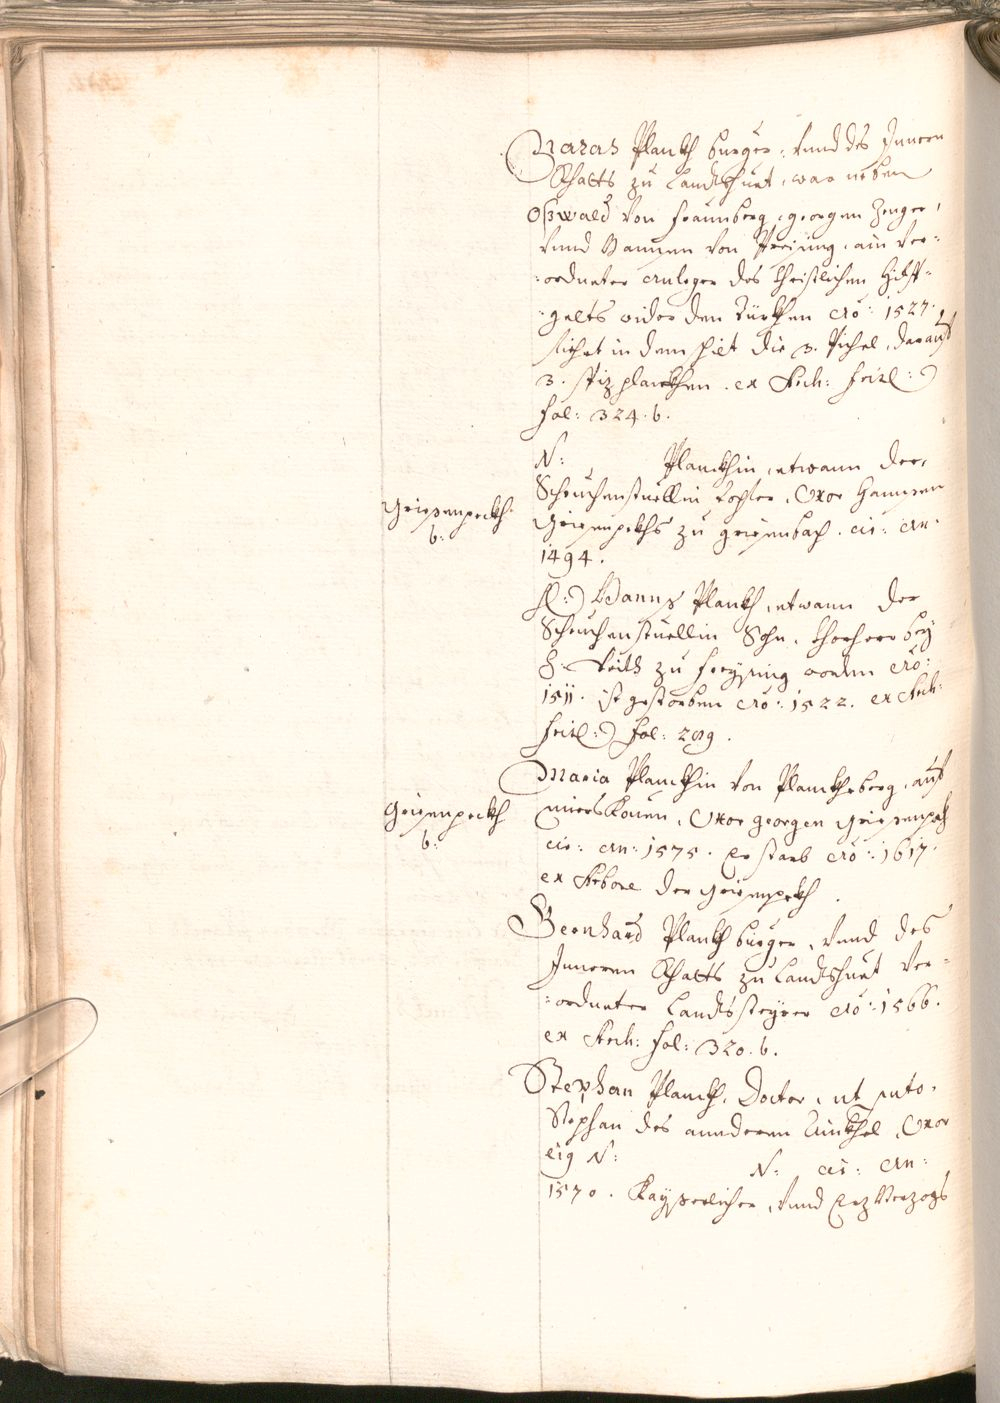 Maras Planckh burger, vnnd des Innern
Rhatts zu Landtshuet, war neben
Oßwald von Fraunberg, Georgen Zenger,
vnnd Hannsen von Preising, ain ver-
ordneter Anleger des Christlichen Hilff-
gelts wider den Türkhen Aõ: 1527.
fiehrt in dem schilt die 3. Pichel, darauf
3. spiz planckhen. ex Arch:
fol: 324. b.
N: Planckhin, etwann der
Scheuchenstuellin tochter, Uxor Hannsen
Griesenpeckhs zu Griesenbach. cir: An.
1494.
Griesenpeckh
b:
Hanns Planckh, etwann der
Scheuchenstuellin Sohn, Chorherr bey
S. Veith zu Freysing worden Aõ:
1511. ist gestorben Aõ: 1522. ex Arch:
fol: 289.
Maria Planckhin von Planckheberg, auf
Uxor Georgen Griesenpeckh
cir: An: 1575. Er starb Aõ: 1617.
ex Arbore der Griesenpeckh.
Griesenpeckh
b:
Bernhard Planckh burger, vnnd des
Inneren Rhatts zu Landtshuet ver-
ordneter Landtssteyrer Aõ: 1566.
ex Arch: fol: 320. b.
Stephan Planckh, Doctor, ut puto.
Stephan des annderen Eninkhel, Uxor
eius N: N: cir: An:
1570. Kayserlicher, vnnd Erzherzogs